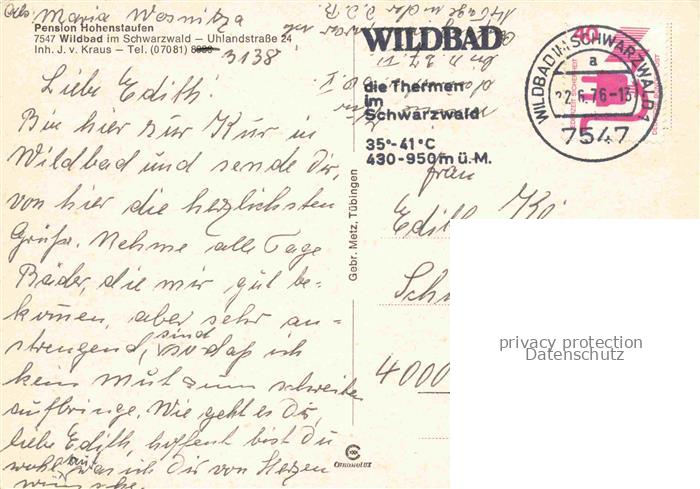 Abs. Maria Wosnitza
Pension Hohenstaufen
7547 Wildbad im Schwarzwald – Uhlandstraße 24
Inh. J. v. Kraus – Tel. (07081)
3138
Liebe Edith!
Bin hier zur Kur in
Wildbad und sende Dir,
von hier die herzlichsten
Grüße. Nehme alle Tage
Bäder, die mir gut be-
kommen, aber sehr an-
strengend, sind so daß ich
kein Mut zum schreiben
aufbringe. Wie geht es Dir,
liebe Edith, hoffent bist Du
wohl auf was ich Dir von Herzen
wünsche.
Gebr. Metz, Tübingen
CHROMOLUX
WILDBAD
die Thermen
im
Schwarzwald
35°-41°C
430-950m ü.M.
40
WILDBAD IM SCHWARZWALD 1
a
22.6.76-13
7547
Frau
Edith
4000
privacy protection
Datenschutz